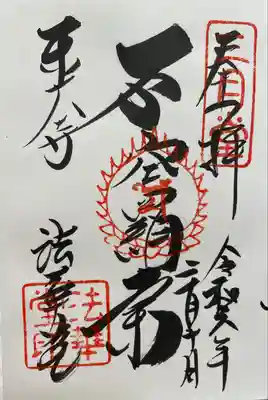 奉拝
令和
不空羂索
東大寺
法華堂
法華堂印